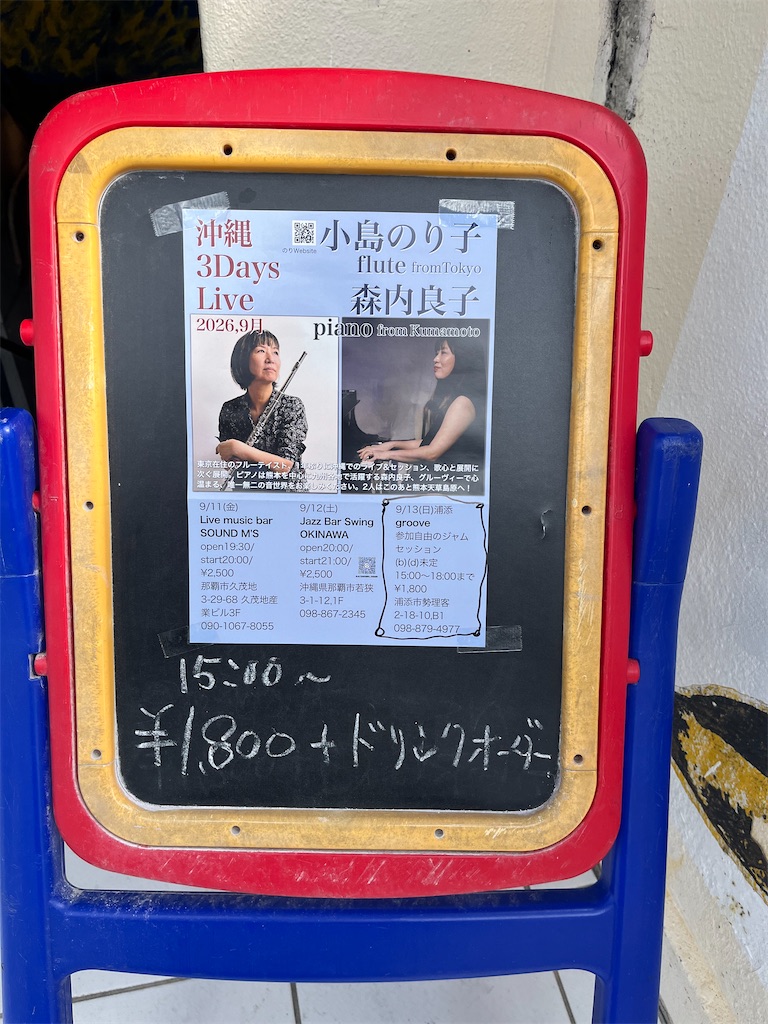 沖縄
3Days
Live
2026,9月
のりWebsite
小島のり子
flute fromTokyo
森内良子
piano from Kumamoto
東京在住のフルーティスト、1年ぶりに沖縄でのライブ&セッション、歌心と展開に
次ぐ展開。ピアノは熊本を中心に九州各地で活躍する森内良子、グルーヴィーで心
温まる、唯一無二の音世界をお楽しみください。2人はこのあと熊本天草島原へ!
9/11(金)
Live music bar
SOUND M'S
open19:30/
start20:00/
¥2,500
那覇市久茂地
3-29-68 久茂地産
業ビル3F
090-1067-8055
9/12(土)
Jazz Bar Swing
OKINAWA
open20:00/
start21:00/
¥2,500
沖縄県那覇市若狭
3-1-12,1F
098-867-2345
9/13(日)浦添
groove
参加自由のジャム
セッション
(b)(d)未定
15:00〜18:00まで
¥1,800
浦添市勢理客
2-18-10,B1
098-879-4977
15:00〜
¥1,800+ドリンクオーダー